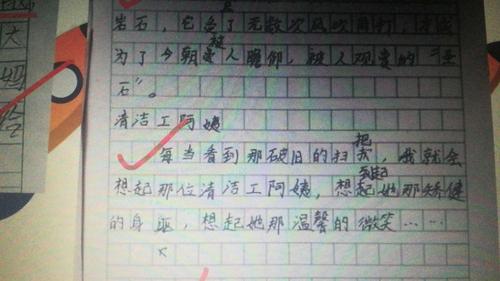 岩石，它了无数次风吹雨打，才成
为了今朝被人瞻仰，被人观赏的“
石”。
清洁工阿姨
每当看到那破旧的扫把，我就会
想起那位清洁工阿姨，想起她那矫健
的身，想起她那温馨的微笑……